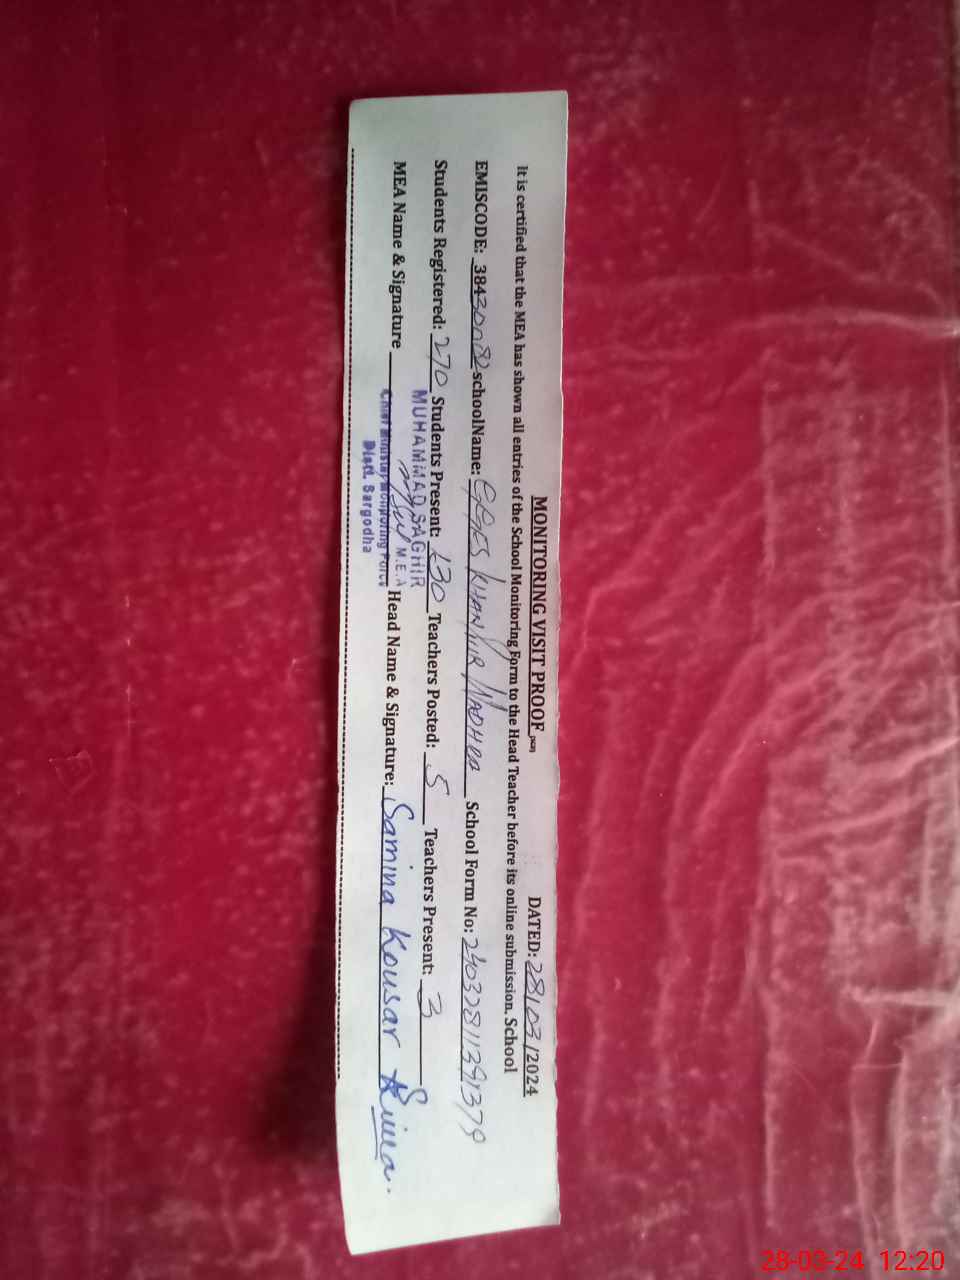 MONITORING VISIT PROOF DATED: 28/03/2024
It is certified that the MEA has shown all entries of the School Monitoring Form to the Head Teacher before its online submission. School
EMISCODE: 38430082 schoolName: GGES KHAN School Form No:
Students Registered: 270 Students Present: 130 Teachers Posted: 5 Teachers Present: 3
MUHAMMAD SAGHIR
MEA Name & Signature M.E.A Head Name & Signature: Samina Kousar
Chief Minister Monitoring Force
Distt. Sargodha
28-03-24 12:20